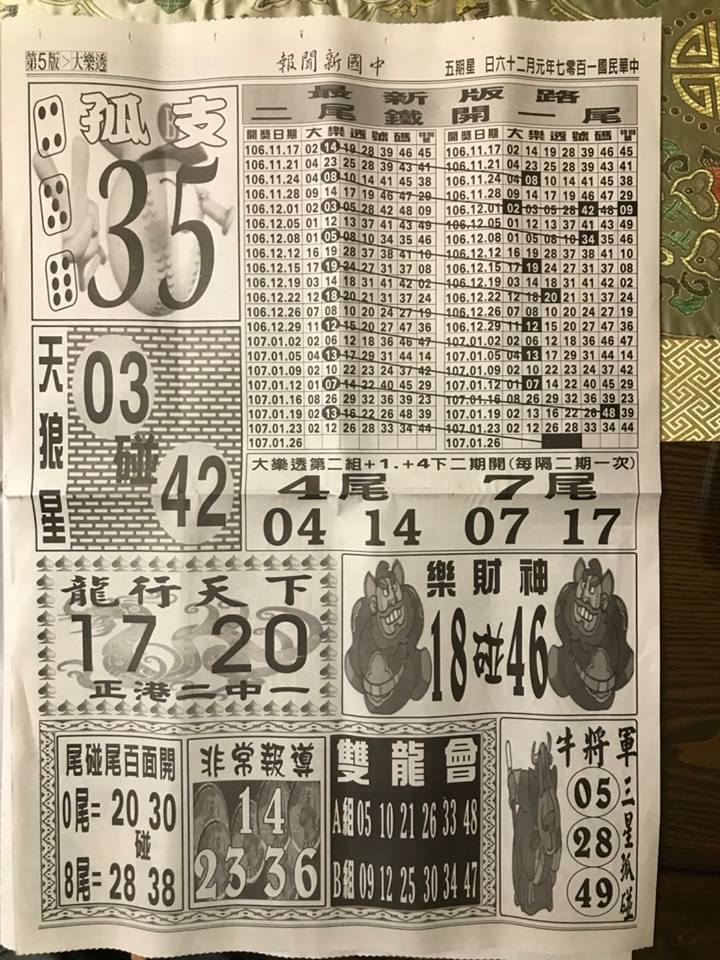 第5版>大樂透
報聞新國中
中華民國一百零七年元月二十六日 星期五
孤支
35
天狼星
03
碰
42
最新版路
二尾鐵開一尾
開獎日期 大樂透號碼
106.11.17 02 14 19 28 39 46 45
106.11.21 04 23 25 28 39 43 41
106.11.24 04 08 10 14 41 45 38
106.11.28 09 14 17 19 46 47 29
106.12.01 02 03 05 28 42 48 09
106.12.05 01 12 13 37 41 43 49
106.12.08 01 05 08 10 34 35 46
106.12.12 16 19 28 37 38 41 10
106.12.15 17 19 24 27 31 37 08
106.12.19 03 14 18 31 41 42 02
106.12.22 12 18 20 21 31 37 24
106.12.26 07 08 10 20 24 27 19
106.12.29 11 12 15 20 27 47 36
107.01.02 02 06 12 18 36 46 47
107.01.05 04 13 17 29 31 44 14
107.01.09 02 10 22 23 24 37 42
107.01.12 01 07 14 22 40 45 29
107.01.16 08 26 29 32 36 39 23
107.01.19 02 13 16 22 26 48 39
107.01.23 02 12 26 28 33 34 44
107.01.26
開獎日期 大樂透號碼
106.11.17 02 14 19 28 39 46 45
106.11.21 04 23 25 28 39 43 41
106.11.24 04 08 10 14 41 45 38
106.11.28 09 14 17 19 46 47 29
106.12.01 02 03 05 28 42 48 09
106.12.05 01 12 13 37 41 43 49
106.12.08 01 05 08 10 34 35 46
106.12.12 16 19 28 37 38 41 10
106.12.15 17 19 24 27 31 37 08
106.12.19 03 14 18 31 41 42 02
106.12.22 12 18 20 21 31 37 24
106.12.26 07 08 10 20 24 27 19
106.12.29 11 12 15 20 27 47 36
107.01.02 02 06 12 18 36 46 47
107.01.05 04 13 17 29 31 44 14
107.01.09 02 10 22 23 24 37 42
107.01.12 01 07 14 22 40 45 29
107.01.16 08 26 29 32 36 39 23
107.01.19 02 13 16 22 26 48 39
107.01.23 02 12 26 28 33 34 44
107.01.26
大樂透第二組+1.+4下二期開(每隔二期一次)
4尾 7尾
04 14 07 17
龍行天下
17 20
正港二中一
樂財神
18碰46
尾碰尾百面開
0尾=20 30
碰
8尾=28 38
非常報導
14
23 36
雙龍會
A組 05 10 21 26 33 48
B組 09 12 25 30 34 47
牛將軍
三星孤碰
05
28
49